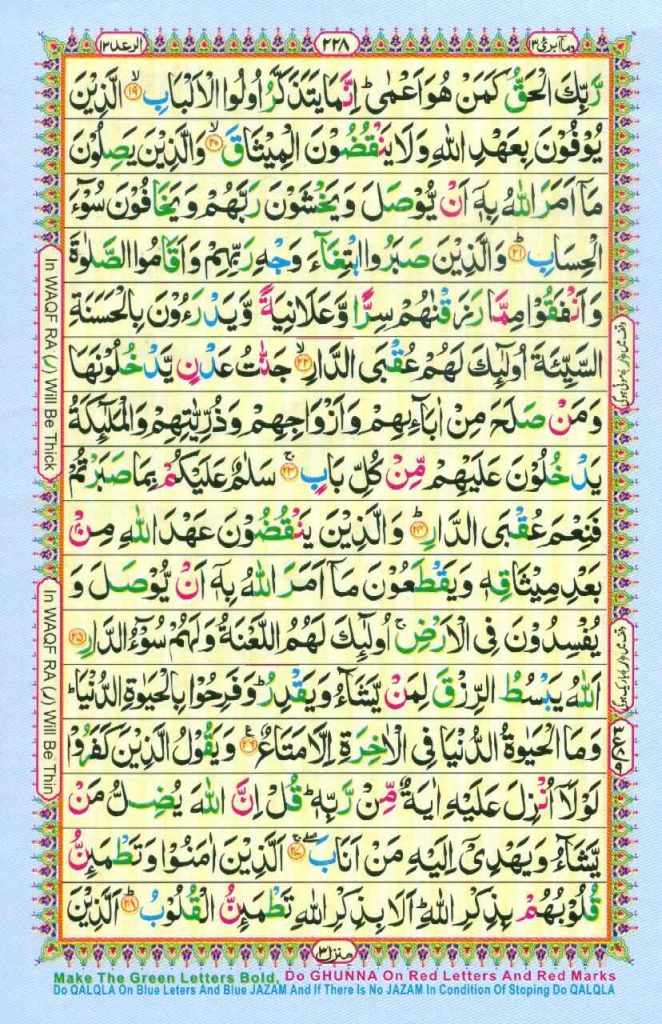 الرعد ١٣
٢٢٨
وما ابرئ ١٣
رَّبِّكَ الْحَقُّ كَمَنْ هُوَ اَعْمٰى ؕ اِنَّمَا يَتَذَكَّرُ اُولُوا الْاَلْبَابِ ۙ‏﴿۱۹﴾ الَّذِيْنَ
يُوْفُوْنَ بِعَهْدِ اللّٰهِ وَلَا يَنْقُضُوْنَ الْمِيْثَاقَ ۙ‏﴿۲۰﴾ وَالَّذِيْنَ يَصِلُوْنَ
مَاۤ اَمَرَ اللّٰهُ بِهٖۤ اَنْ يُّوْصَلَ وَيَخْشَوْنَ رَبَّهُمْ وَيَخَافُوْنَ سُوْٓءَ
الْحِسَابِ ؕ‏﴿۲۱﴾ وَالَّذِيْنَ صَبَرُوا ابْتِغَآءَ وَجْهِ رَبِّهِمْ وَاَقَامُوا الصَّلٰوةَ
وَاَنْفَقُوْا مِمَّا رَزَقْنٰهُمْ سِرًّا وَّعَلَانِيَةً وَّيَدْرَءُوْنَ بِالْحَسَنَةِ
السَّيِّئَةَ اُولٰٓئِكَ لَهُمْ عُقْبَى الدَّارِ ۙ‏﴿۲۲﴾ جَنّٰتُ عَدْنٍ يَّدْخُلُوْنَهَا
وَمَنْ صَلَحَ مِنْ اٰبَآئِهِمْ وَاَزْوَاجِهِمْ وَذُرِّيّٰتِهِمْ وَالْمَلٰٓئِكَةُ
يَدْخُلُوْنَ عَلَيْهِمْ مِّنْ كُلِّ بَابٍ ۚ‏﴿۲۳﴾ سَلٰمٌ عَلَيْكُمْ بِمَا صَبَرْتُمْ
فَنِعْمَ عُقْبَى الدَّارِ ؕ‏﴿۲۴﴾ وَالَّذِيْنَ يَنْقُضُوْنَ عَهْدَ اللّٰهِ مِنْۢ
بَعْدِ مِيْثَاقِهٖ وَيَقْطَعُوْنَ مَاۤ اَمَرَ اللّٰهُ بِهٖۤ اَنْ يُّوْصَلَ وَ
يُفْسِدُوْنَ فِى الْاَرْضِ ۙ اُولٰٓئِكَ لَهُمُ اللَّعْنَةُ وَلَهُمْ سُوْٓءُ الدَّارِ‏﴿۲۵﴾
اَللّٰهُ يَبْسُطُ الرِّزْقَ لِمَنْ يَّشَآءُ وَيَقْدِرُ ؕ وَفَرِحُوْا بِالْحَيٰوةِ الدُّنْيَا ؕ
وَمَا الْحَيٰوةُ الدُّنْيَا فِى الْاٰخِرَةِ اِلَّا مَتَاعٌ ﴿۲۶﴾ وَيَقُوْلُ الَّذِيْنَ كَفَرُوْا
لَوْلَاۤ اُنْزِلَ عَلَيْهِ اٰيَةٌ مِّنْ رَّبِّهٖ ؕ قُلْ اِنَّ اللّٰهَ يُضِلُّ مَنْ
يَّشَآءُ وَيَهْدِىْۤ اِلَيْهِ مَنْ اَنَابَ ۖۚ‏﴿۲۷﴾ اَلَّذِيْنَ اٰمَنُوْا وَتَطْمَئِنُّ
قُلُوْبُهُمْ بِذِكْرِ اللّٰهِ ؕ اَلَا بِذِكْرِ اللّٰهِ تَطْمَئِنُّ الْقُلُوْبُ ؕ‏﴿۲۸﴾ اَلَّذِيْنَ
منزل ٣
In WAQF RA (ر) Will Be Thick
In WAQF RA (ر) Will Be Thin
Make The Green Letters Bold, Do GHUNNA On Red Letters And Red Marks
Do QALQLA On Blue Leters And Blue JAZAM And If There Is No JAZAM In Condition Of Stoping Do QALQLA